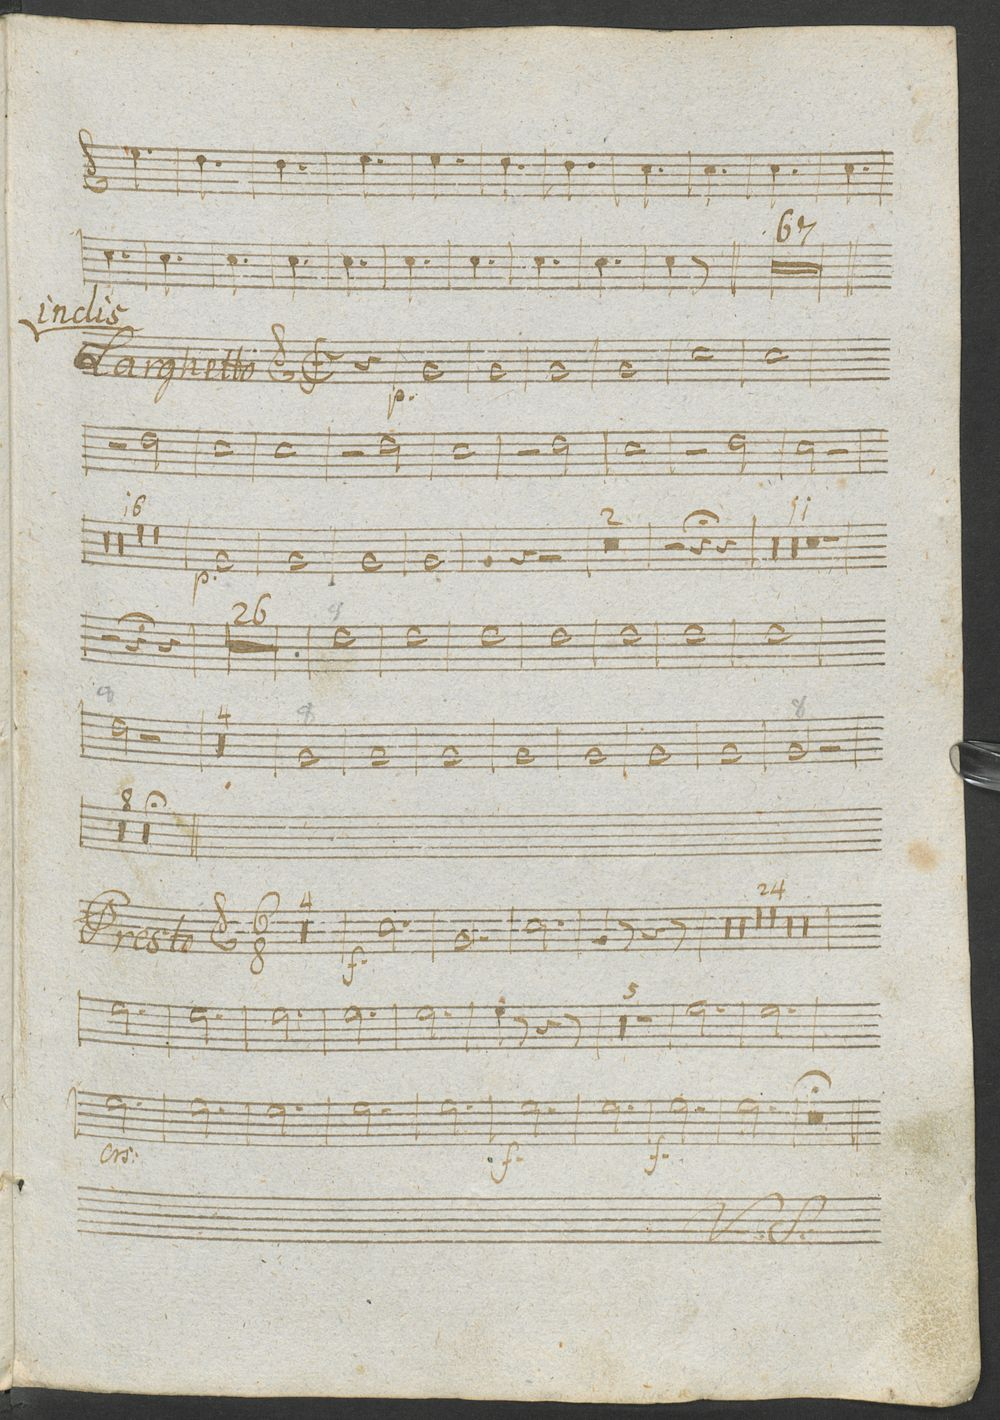 67
indis
Larghetto
p.
16
p.
2
11
26
8
8
4
8
8
8
Presto
6
8
4
24
f.
5
crs:
f.
f.
V. S.